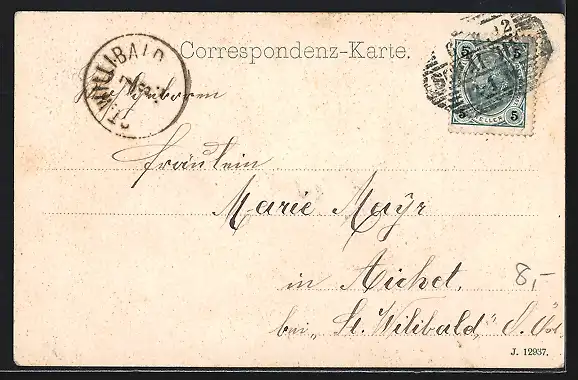 Correspondenz-Karte.
ST. WILLIBALD
5 5
HELLER
5 5
Fräulein
Marie Mayr
in Aichet,
bei „St. Wilibald,"
8,-
J. 12937.